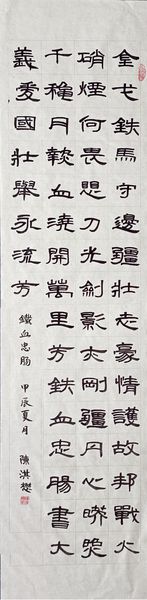 金戈鉄馬守邊疆壯志豪情護故邦戰火
硝煙何畏懼刀光劍影亦剛疆丹心映照
千穐月熱血澆開萬里芳鉄血忠腸書大
義愛國壯舉永流芳
鐵血忠腸 甲辰夏月 陳淇